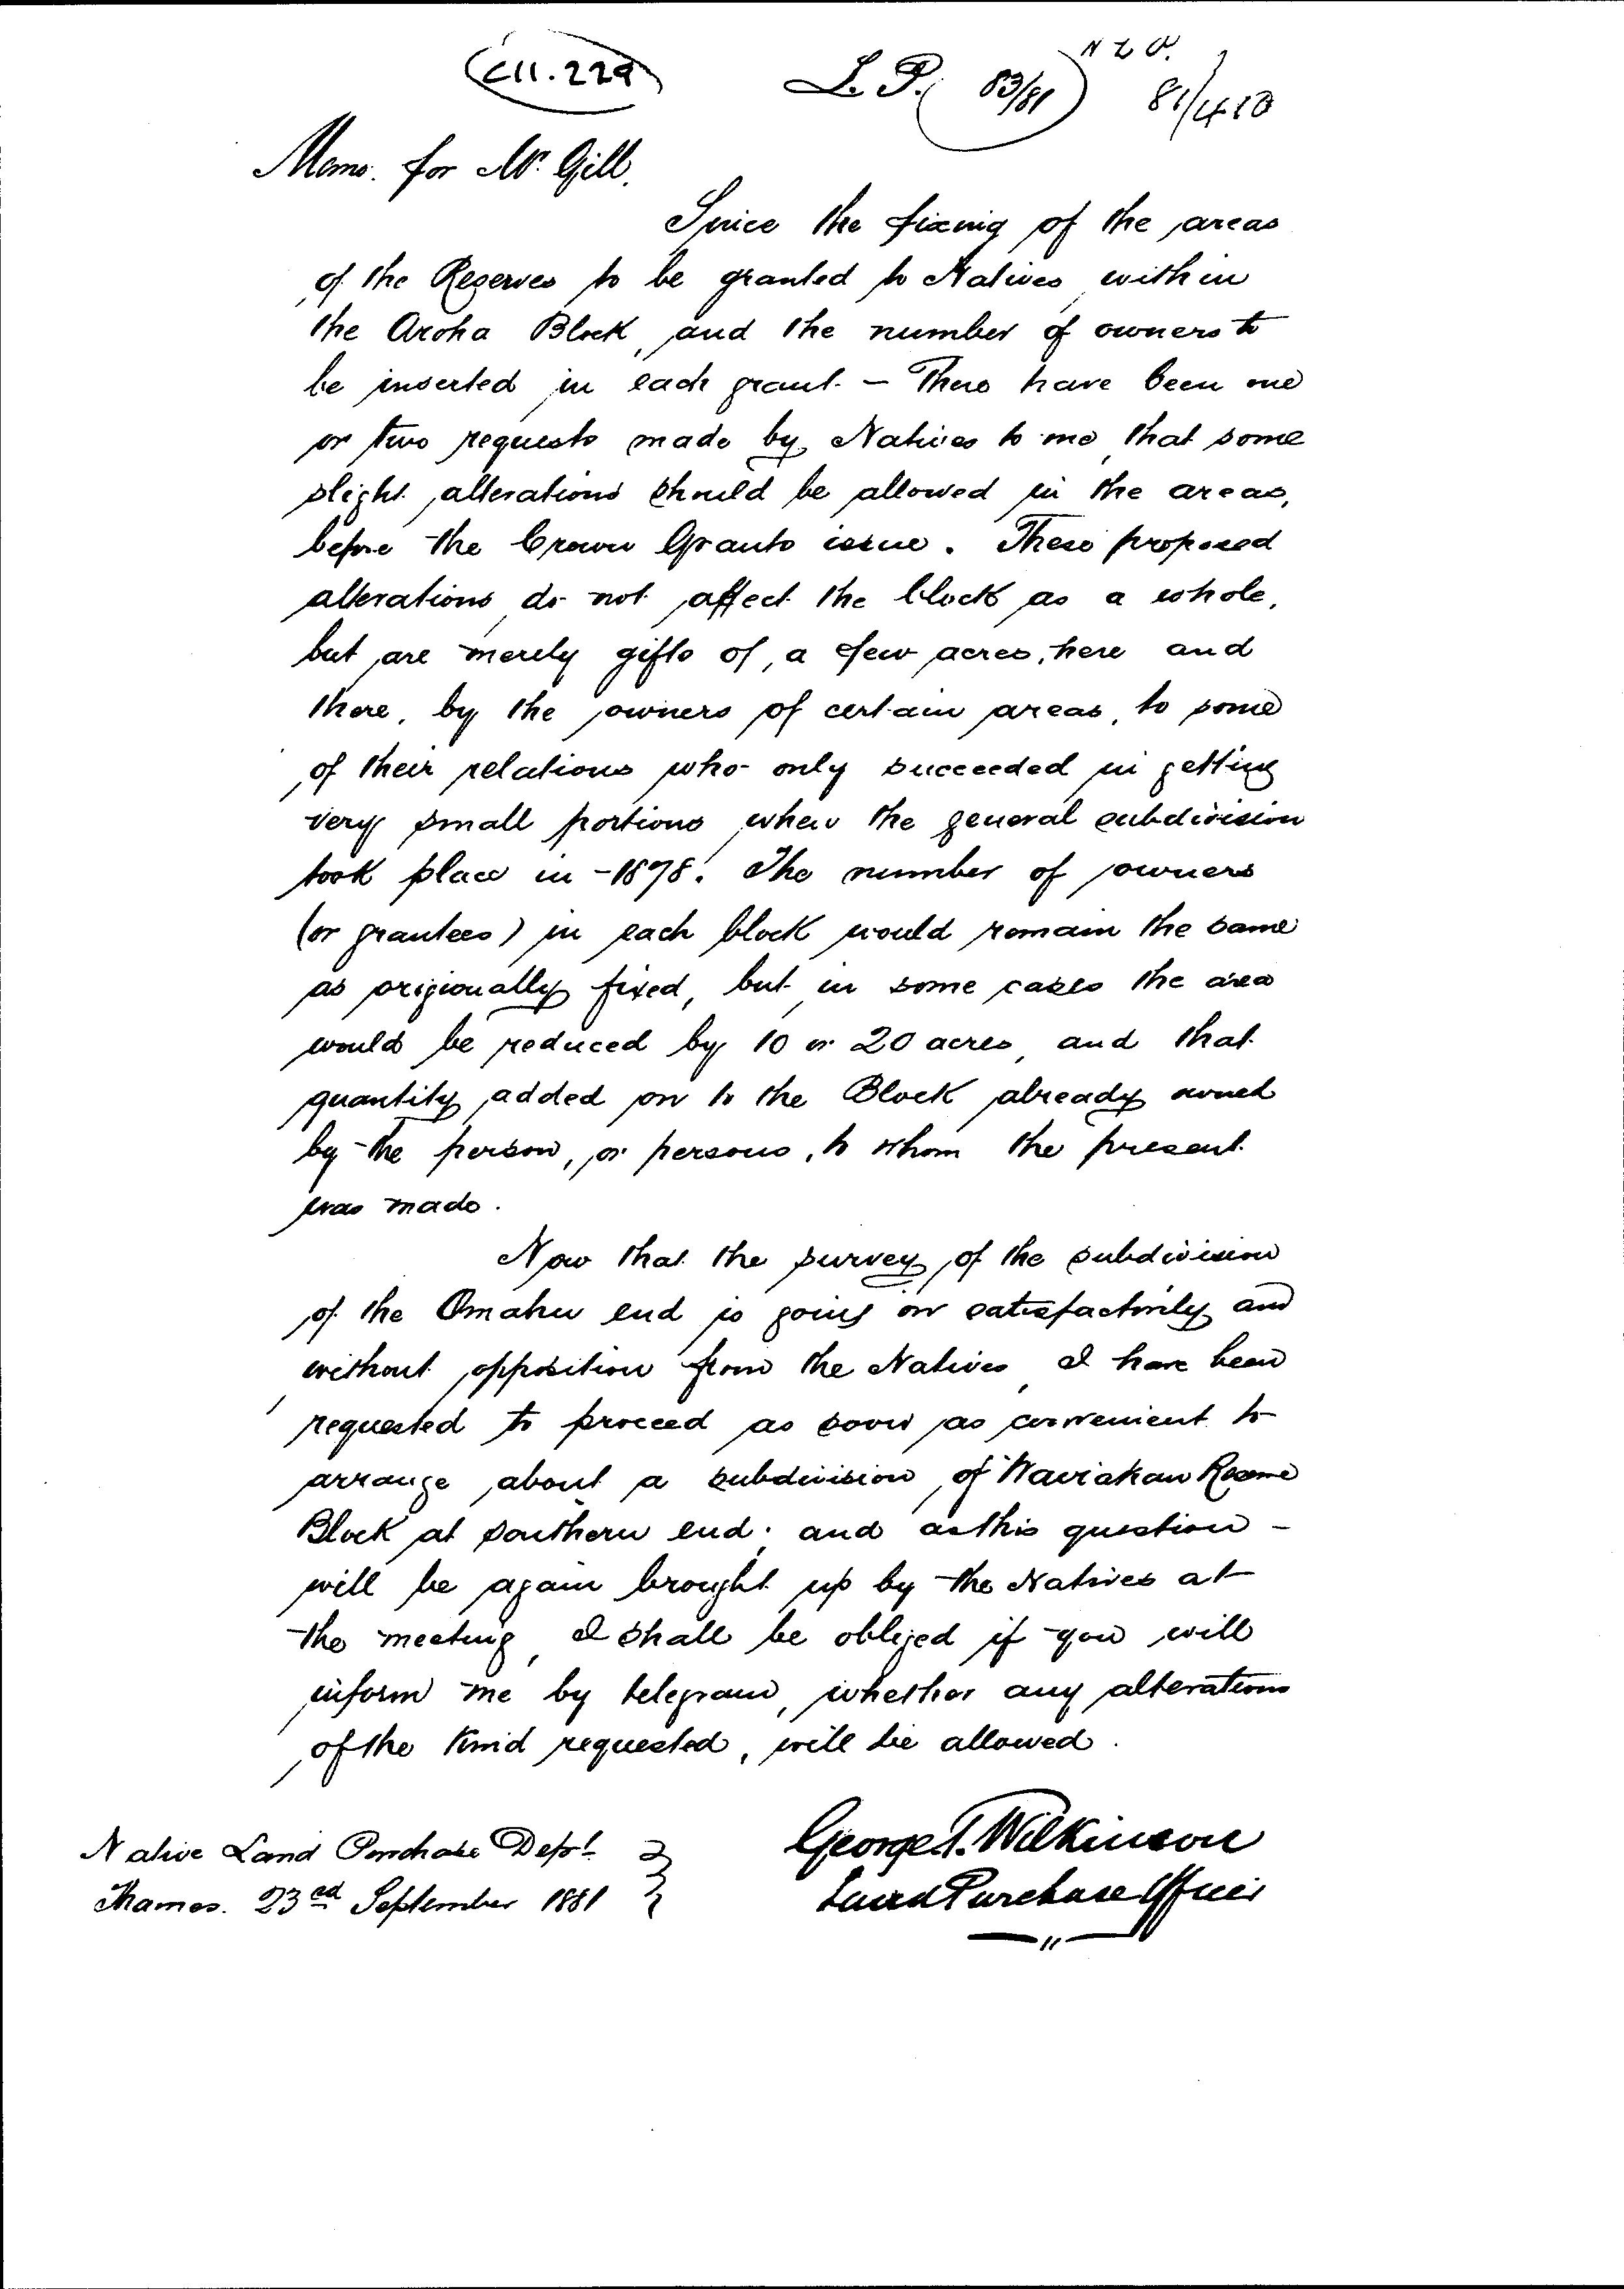 C11.229
L. P. 83/81
N L P.
81/410
Memo. for Mr. Gill.
Since the fixing of the areas
of the Reserves to be granted to Natives within
the Aroha Block, and the number of owners to
be inserted in each grant. - There have been one
or two requests made by Natives to me, that some
slight alterations should be allowed in the areas,
before the Crown Grants issue. These proposed
alterations do not affect the block as a whole,
but are merely gifts of, a few acres, here and
there, by the owners of certain areas, to some
of their relations who only succeeded in getting
very small portions when the general subdivision
took place in - 1878. The number of owners
(or grantees) in each block would remain the same
as origionally fixed, but in some cases the area
would be reduced by 10 or 20 acres, and that
quantity added on to the Block already owned
by the person, or persons, to whom the present
was made.
Now that the survey of the subdivision
of the Omahu end is going on satisfactorily and
without opposition from the Natives, I have been
requested to proceed as soon as convenient to
arrange about a subdivision of Wairakau Reserve
Block at southern end; and as this question -
will be again brought up by the Natives at
the meeting, I shall be obliged if you will
inform me by telegram, whether any alterations
of the kind requested, will be allowed.
George T. Wilkinson
Land Purchase Officer
Native Land Purchase Dept.
Thames. 23rd September 1881